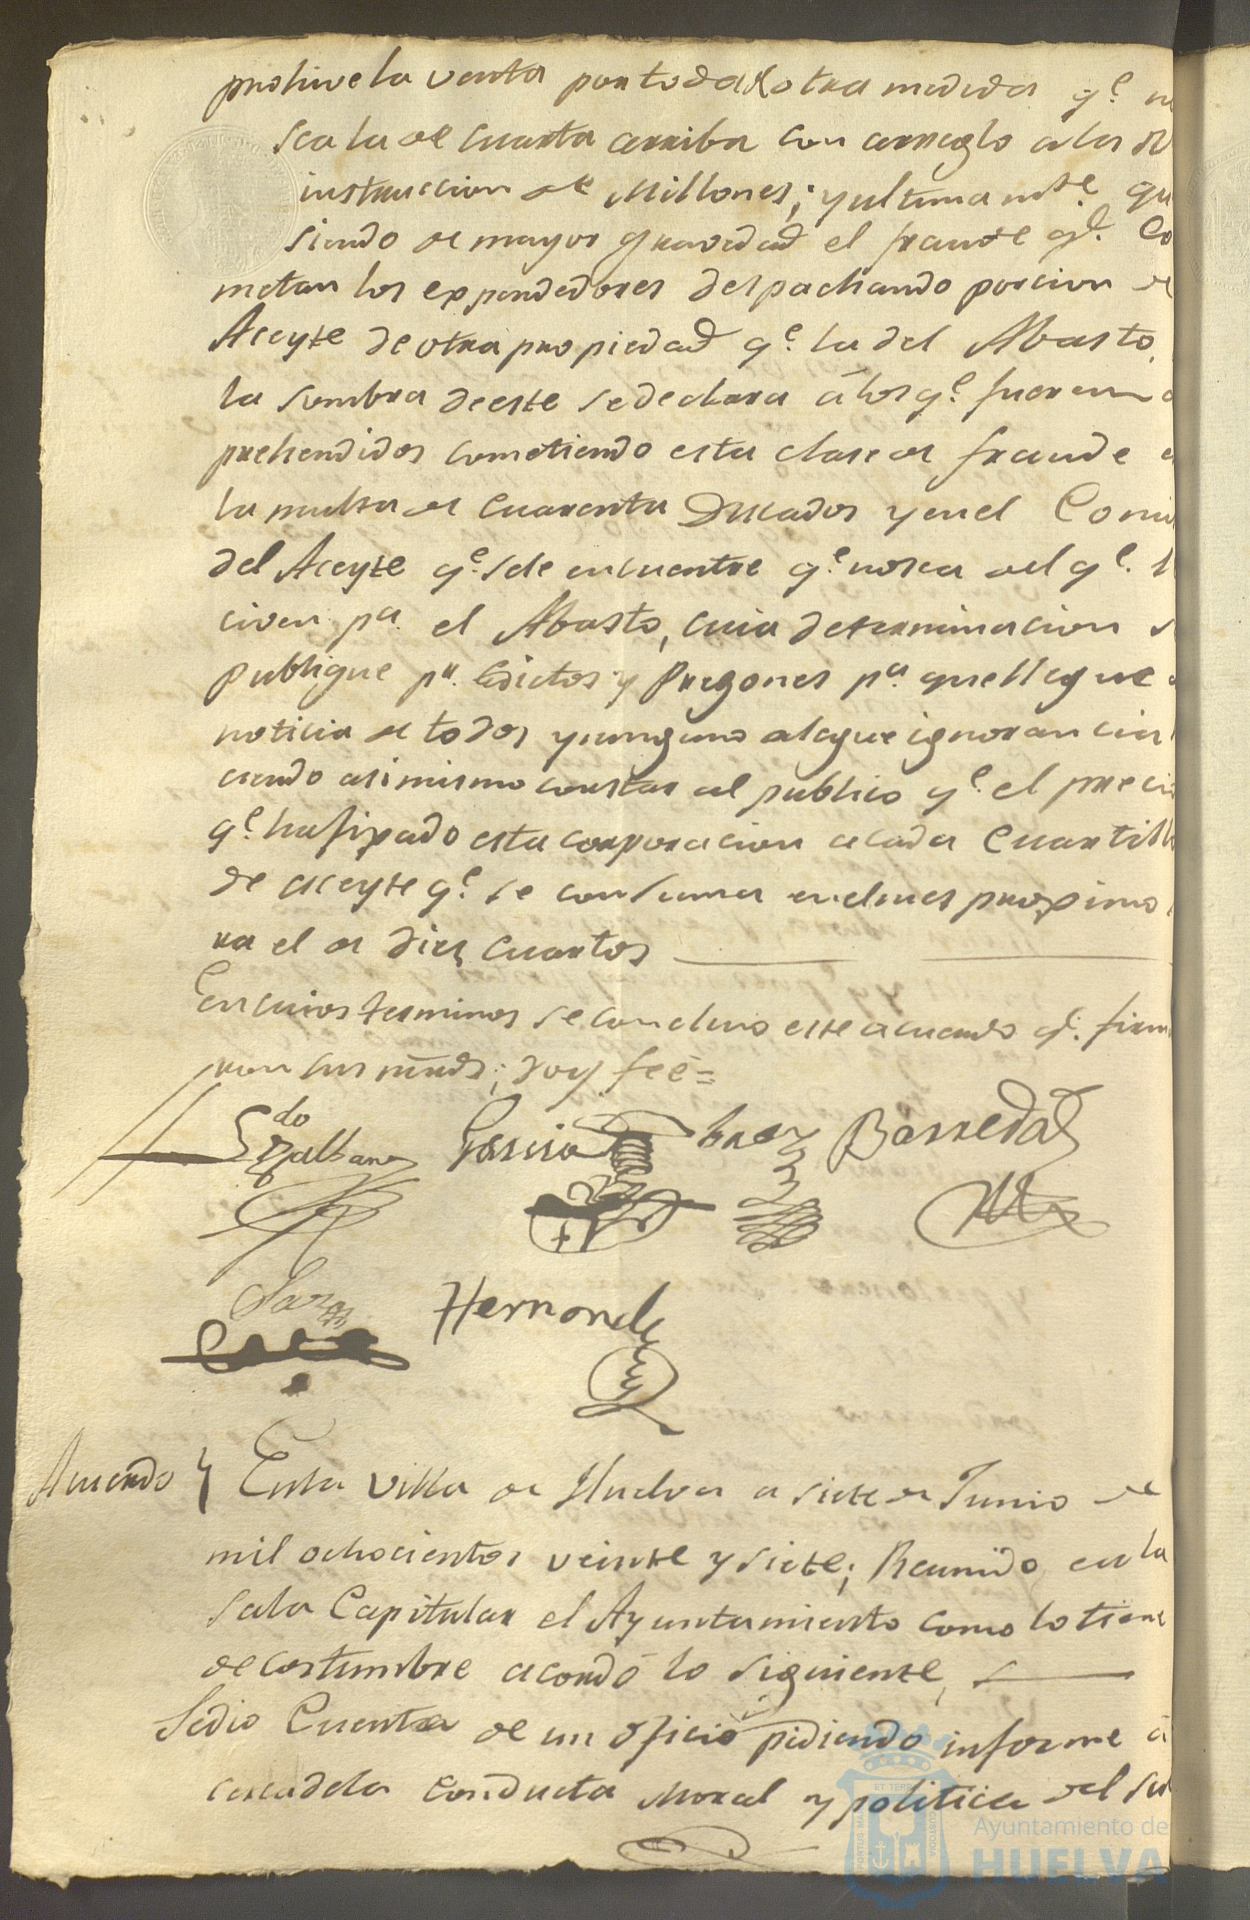 prohive la venta por toda otra medida q.e n
sea la de cuarta arriba con arreglo a la R
instruccion de Millones; y ultimam.te qu
siendo de mayor gravedad el fraude q.e co
metan los expendedores despachando porcion de
Aceyte de otra propiedad q.e la del Abasto,
la sombra de este se declara á los q.e fueren a
prehendidos cometiendo esta clase de fraude e
la multa de cuarenta Ducados y en el Comi
del Aceyte q.e se le encuentre q.e no sea del q.e r
civen p.a el Abasto, cuia determinacion s
publique p.r Edictos y Pregones p.a que llegue a
noticia de todos y ninguno alegue ignorancia
ciendo asi mismo constar al publico q.e el preci
q.e ha fixado esta corporacion a cada cuartill
de aceyte q.e se consuma en el mes proximo
ra el de diez cuartos
En cuios terminos se concluio este acuerdo q.e firm
ron sus mrds; doy fee=
Garcia Barreda
Hernandez
Acuerdo } En la Villa de Huelva a siete de Junio de
mil ochocientos veinte y siete; Reunido en la
Sala Capitular el Ayuntamiento como lo tiene
de costumbre acordó lo siguiente,
Se dio Cuenta de un oficio pidiendo informe á
cerca de la conducta moral y politica del su
Ayuntamiento de
HUELVA